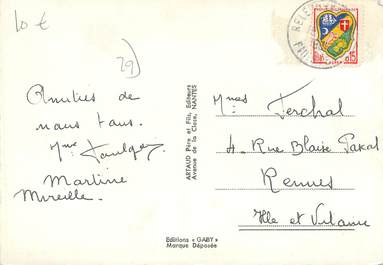 10 €
29)
Amitiés de
nous tous.
Mme
Martine
Mireille.
ARTAUD Père et Fils, Editeurs
Avenue de la Close, NANTES
Editions « GABY »
Marque Déposée
0.15
Mmes Ferchal
4. Rue Blaise Pascal
Rennes
Ille et Vilaine